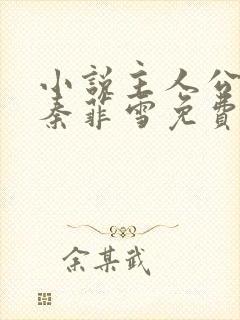 小说主人公
秦菲雪免费
余某武